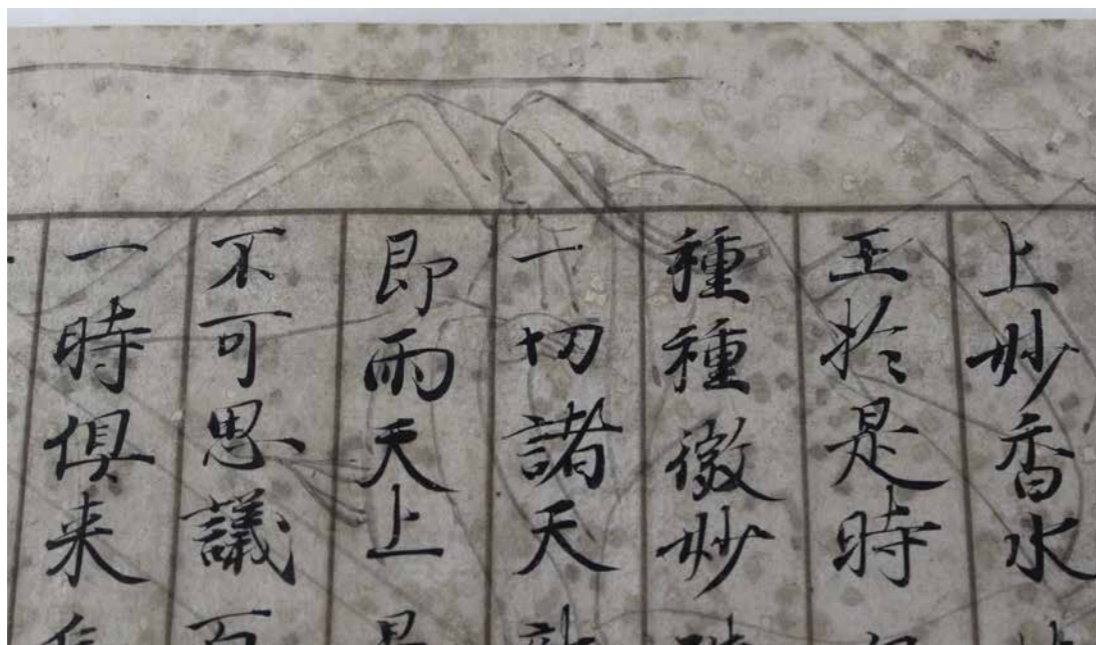 上妙香水
王於是時
種種微妙
一切諸天
即雨天上
不可思議
一時俱来